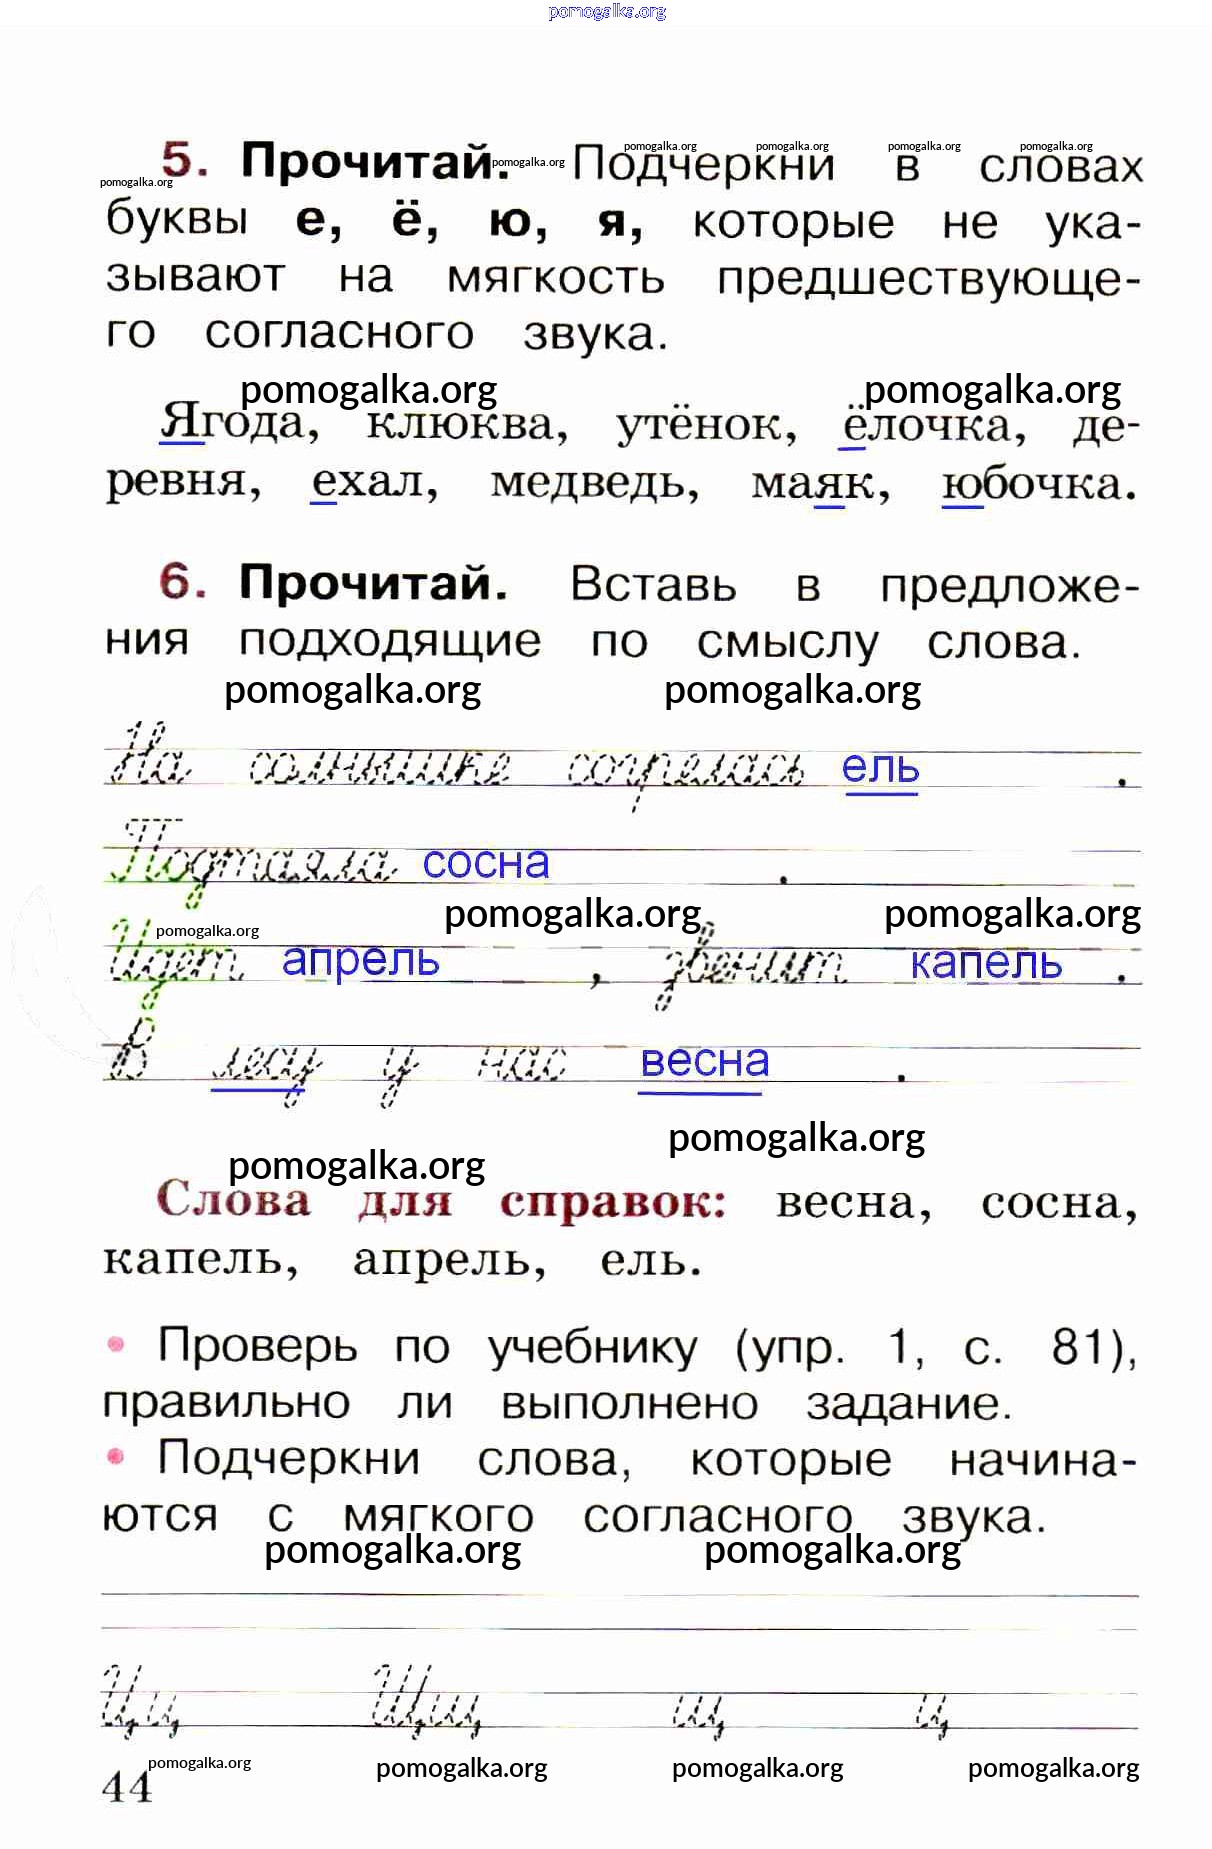 pomogalka.org
5. Прочитай. Подчеркни в словах
pomogalka.org pomogalka.org pomogalka.org pomogalka.org pomogalka.org pomogalka.org
буквы е, ё, ю, я, которые не ука-
зывают на мягкость предшествующе-
го согласного звука.
pomogalka.org pomogalka.org
Ягода, клюква, утёнок, ёлочка, де-
ревня, ехал, медведь, маяк, юбочка.
6. Прочитай. Вставь в предложе-
ния подходящие по смыслу слова.
pomogalka.org pomogalka.org
На солнышке согрелась ель .
Подтаяла сосна .
pomogalka.org pomogalka.org
pomogalka.org
Идёт апрель , звенит капель .
В лесу у нас весна .
pomogalka.org
pomogalka.org
Слова для справок: весна, сосна,
капель, апрель, ель.
• Проверь по учебнику (упр. 1, с. 81),
правильно ли выполнено задание.
• Подчеркни слова, которые начина-
ются с мягкого согласного звука.
pomogalka.org pomogalka.org
Цц Щщ щ ц
pomogalka.org pomogalka.org pomogalka.org pomogalka.org
44